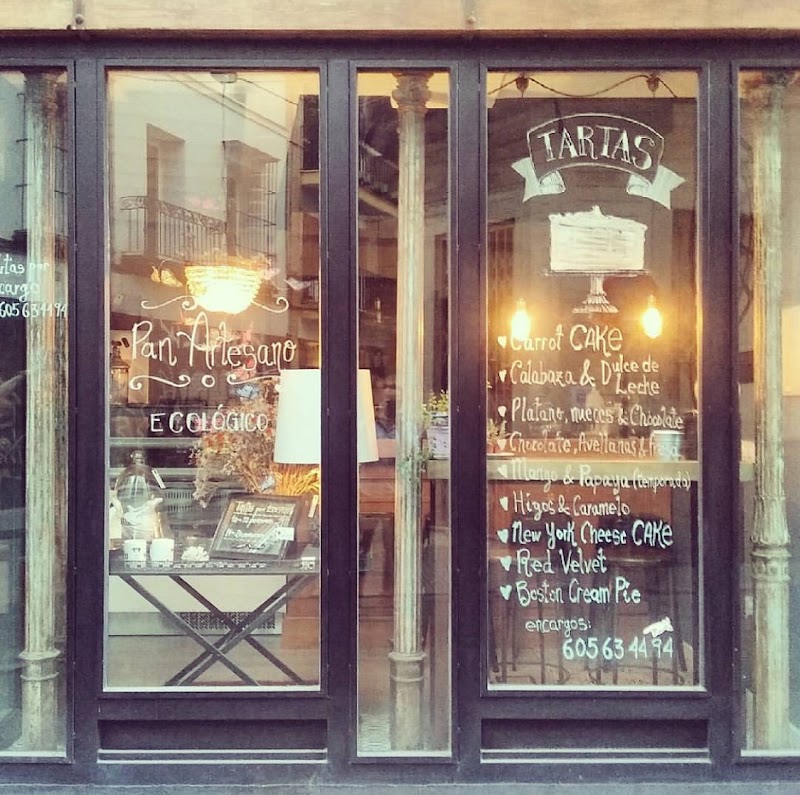 por
605634494
Pan Artesano
ECOLÓGICO
TARTAS
Carrot CAKE
Calabaza & Dulce de
Leche
Platano, nueces & Chocolate
Chocolate, Avellanas &
Mango & Papaya (temporada)
Higos & Caramelo
New York Cheese CAKE
Red Velvet
Boston Cream Pie
encargos:
605634494